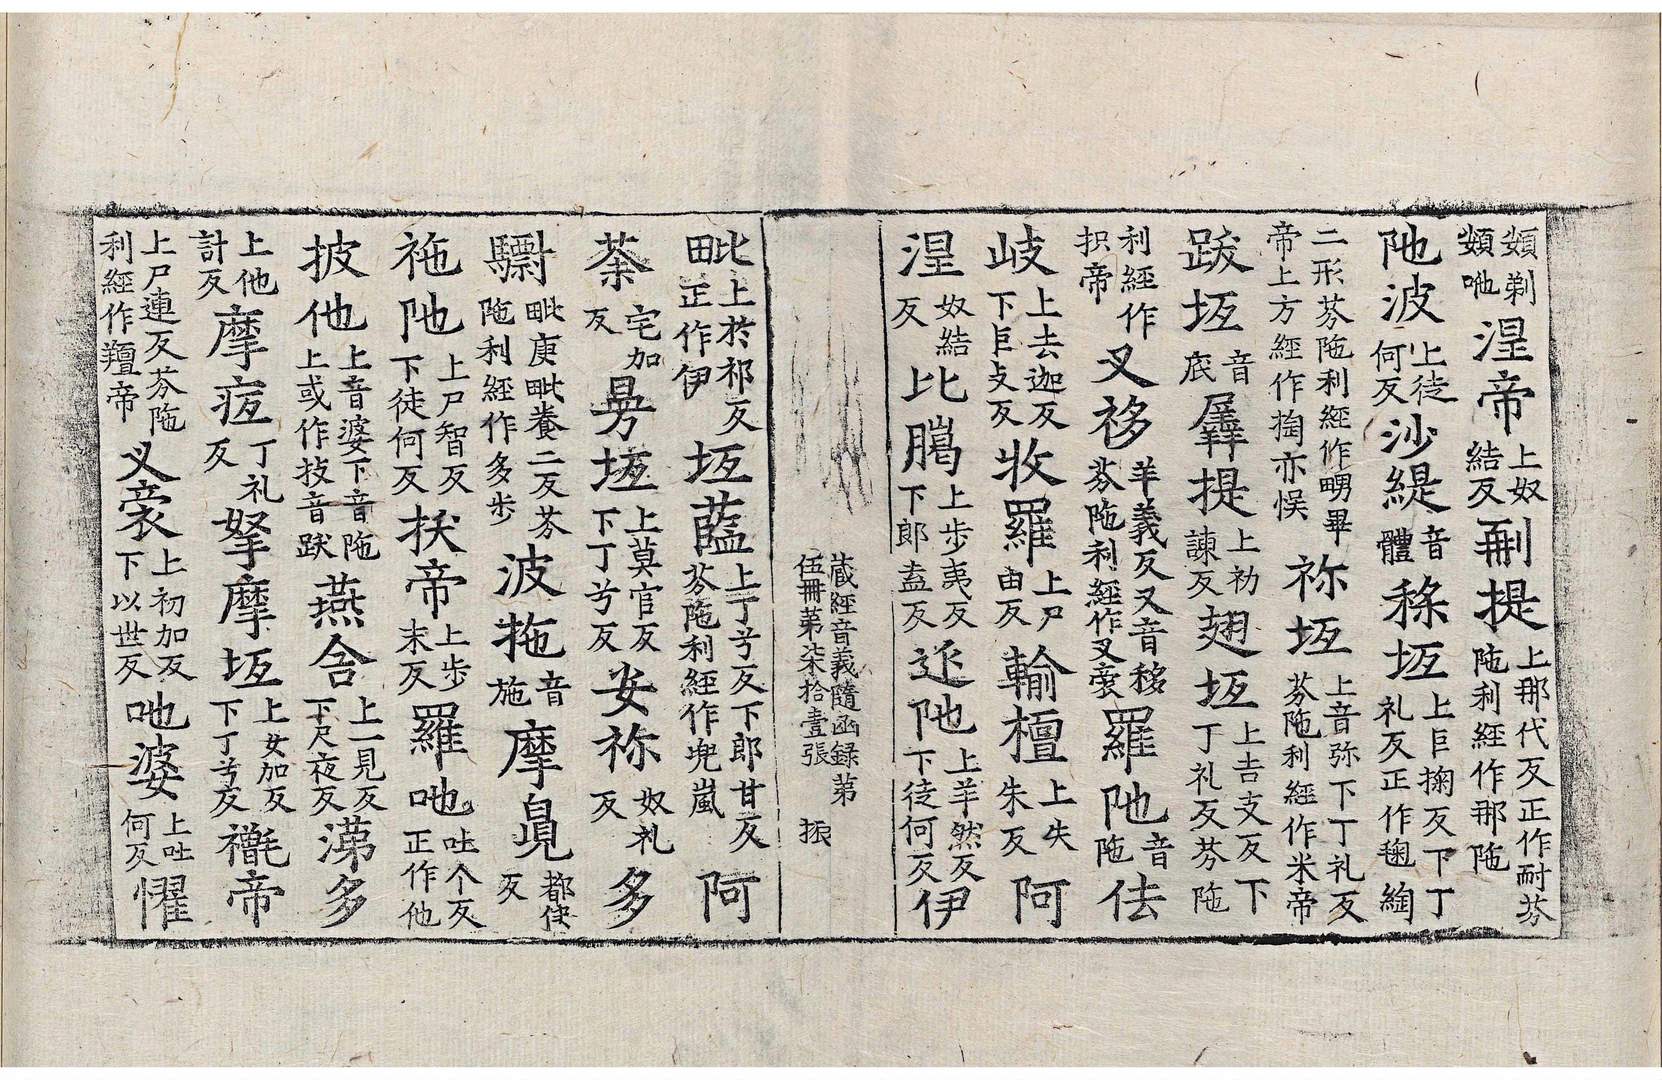 𪏆剃𪏆吔涅帝上奴結反𠜂提上那代反正作耐芬陁利經作那陁
陁波上徒何反沙緹音體稌坘上巨掬反下丁礼反正作䅵綯
二形芬陁利經作𤲞畢帝上方經作掏亦悮祢坘上音弥下丁礼反芬陁利經作米帝
跋坘音底羼提上初諫反翅坘上吉支反下丁礼反芬陁
利經作抧帝叉袳羊義反又音移芬陁利經作叉裔羅吔音陁佉
岐上去迦反下巨支反收羅上尸由反輸檀上失朱反阿
涅奴結反比臈上步夷反下郎盍反𨒂陁上羊然反下徒何反伊
藏經音義隨函錄第伍冊第柒拾壹張 振
毗上於祁反正作伊坘藍上丁兮反下郎甘反芬陁利經作兠嵐阿
荼宅加反㝃坘上莫官反下丁兮反安祢奴礼反多
驧毗庚毗養二反芬陁利經作多步波拖音施摩㒵都俠反
袘陁上尸智反下徒何反抶帝上步末反羅吔吐个反正作他
披他上音婆下音陁上或作技音跋燕舍上一見反下尺夜反𣻌多
上他計反摩𤵜丁礼反拏摩坘上女加反下丁兮反𧞅帝
上尸連反芬陁利經作羶帝叉裔上初加反下以世反吔婆上吐何反懼